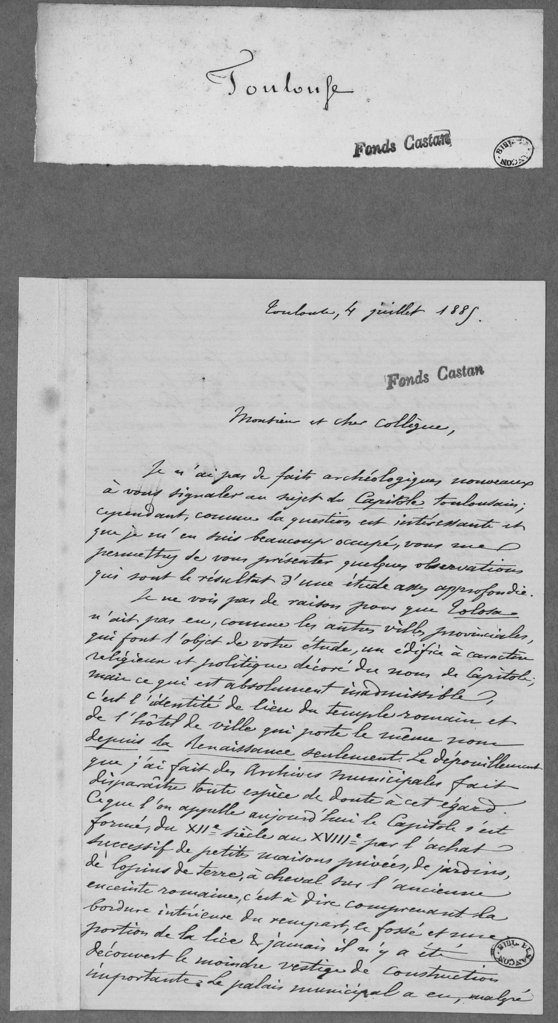 Toulouse
Fonds Castan
Toulouse, 4 juillet 1885.
Fonds Castan
Monsieur et cher collègue,
Je n'ai pas de faits archéologiques nouveaux
à vous signaler au sujet du Capitole toulousain;
cependant, comme la question est intéressante et
que je m'en suis beaucoup occupé, vous me
permettrez de vous présenter quelques observations
qui sont le résultat d'une étude assez approfondie.
Je ne vois pas de raison pour que Tolosa
n'ait pas eu, comme les autres villes provinciales,
qui font l'objet de votre étude, un édifice à caractère
religieux et politique décoré du nom de Capitole;
mais ce qui est absolument inadmissible,
c'est l'identité de lieu du temple romain et
de l'hôtel de ville qui porte le même nom
depuis la Renaissance seulement. Le dépouillement
que j'ai fait des Archives municipales fait
disparaître toute espèce de doute à cet égard.
Ce que l'on appelle aujourd'hui le Capitole s'est
formé, du XIIe siècle au XVIIIe par l'achat
successif de petites maisons privées, de jardins,
de lopins de terre, à cheval sur l'ancienne
enceinte romaine, c'est à dire comprenant la
bordure intérieure du rempart, le fossé et une
portion de la lice & jamais il n'y a été
découvert le moindre vestige de construction
importante. Le palais municipal a eu, malgré